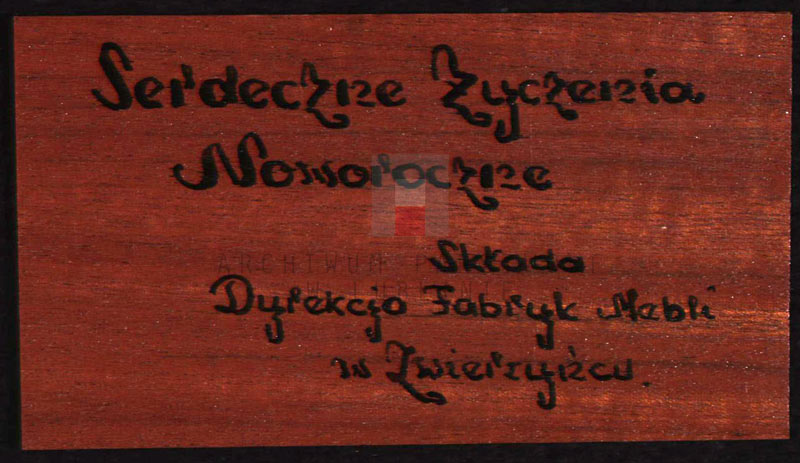 Serdeczne Życzenia
Noworoczne
Składa
Dyrekcja Fabryk Mebli
w Zwierzyńcu.
ARCHIWUM